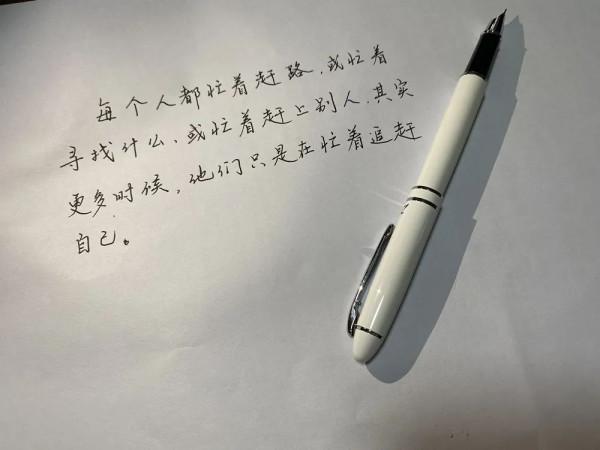 每个人都忙着赶路，或忙着
寻找什么、或忙着赶上别人，其实
更多时候，他们只是在忙着追赶
自己。